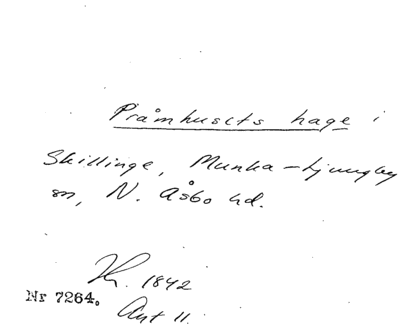 Pråmhusets hage i
Skillinge, Munka-Ljungby
sn, N. Åsbo hd.
Kr. 1842
Nr 7264.
Avt 11.